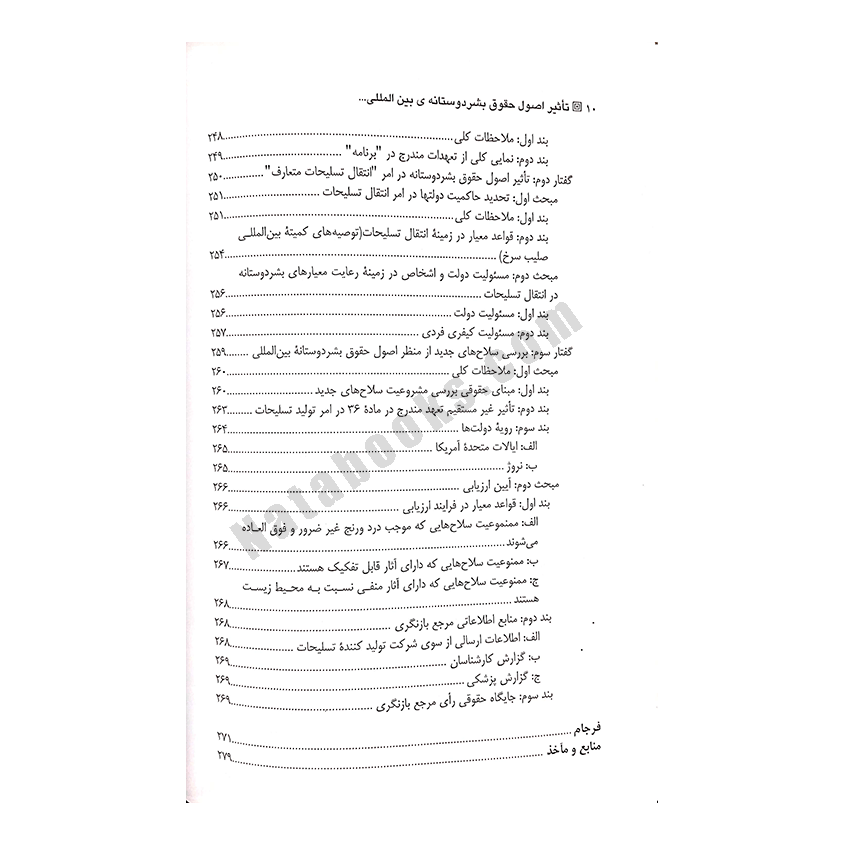 ۱۰ تأثیر اصول حقوق بشردوستانه ی بین المللی...
بند اول: ملاحظات کلی ........ ۲۴۸
بند دوم: نمایی کلی از تعهدات مندرج در "برنامه" ........ ۲۴۹
گفتار دوم: تأثیر اصول حقوق بشردوستانه در امر "انتقال تسلیحات متعارف" ........ ۲۵۰
مبحث اول: تحدید حاکمیت دولتها در امر انتقال تسلیحات ........ ۲۵۱
بند اول: ملاحظات کلی ........ ۲۵۱
بند دوم: قواعد معیار در زمینهٔ انتقال تسلیحات(توصیه‌های کمیتهٔ بین‌المللی
صلیب سرخ) ........ ۲۵۴
مبحث دوم: مسئولیت دولت و اشخاص در زمینهٔ رعایت معیارهای بشردوستانه
در انتقال تسلیحات ........ ۲۵۶
بند اول: مسئولیت دولت ........ ۲۵۶
بند دوم: مسئولیت کیفری فردی ........ ۲۵۷
گفتار سوم: بررسی سلاح‌های جدید از منظر اصول حقوق بشردوستانهٔ بین‌المللی ........ ۲۵۹
مبحث اول: ملاحظات کلی ........ ۲۶۰
بند اول: مبنای حقوقی بررسی مشروعیت سلاح‌های جدید ........ ۲۶۰
بند دوم: تأثیر غیر مستقیم تعهد مندرج در مادهٔ ۳۶ در امر تولید تسلیحات ........ ۲۶۳
بند سوم: رویهٔ دولت‌ها ........ ۲۶۴
الف: ایالات متحدهٔ آمریکا ........ ۲۶۵
ب: نروژ ........ ۲۶۵
مبحث دوم: آیین ارزیابی ........ ۲۶۶
بند اول: قواعد معیار در فرایند ارزیابی ........ ۲۶۶
الف: ممنموعیت سلاح‌هایی که موجب درد ورنج غیر ضرور و فوق العاده
می‌شوند ........ ۲۶۶
ب: ممنوعیت سلاح‌هایی که دارای آثار قابل تفکیک هستند ........ ۲۶۷
ج: ممنوعیت سلاح‌هایی که دارای آثار منفی نسبت به محیط زیست
هستند ........ ۲۶۸
بند دوم: منابع اطلاعاتی مرجع بازنگری ........ ۲۶۸
الف: اطلاعات ارسالی از سوی شرکت تولید کنندهٔ تسلیحات ........ ۲۶۸
ب: گزارش کارشناسان ........ ۲۶۹
ج: گزارش پزشکی ........ ۲۶۹
بند سوم: جایگاه حقوقی رأی مرجع بازنگری ........ ۲۶۹
فرجام ........ ۲۷۱
منابع و مآخذ ........ ۲۷۹
Natabooks.com